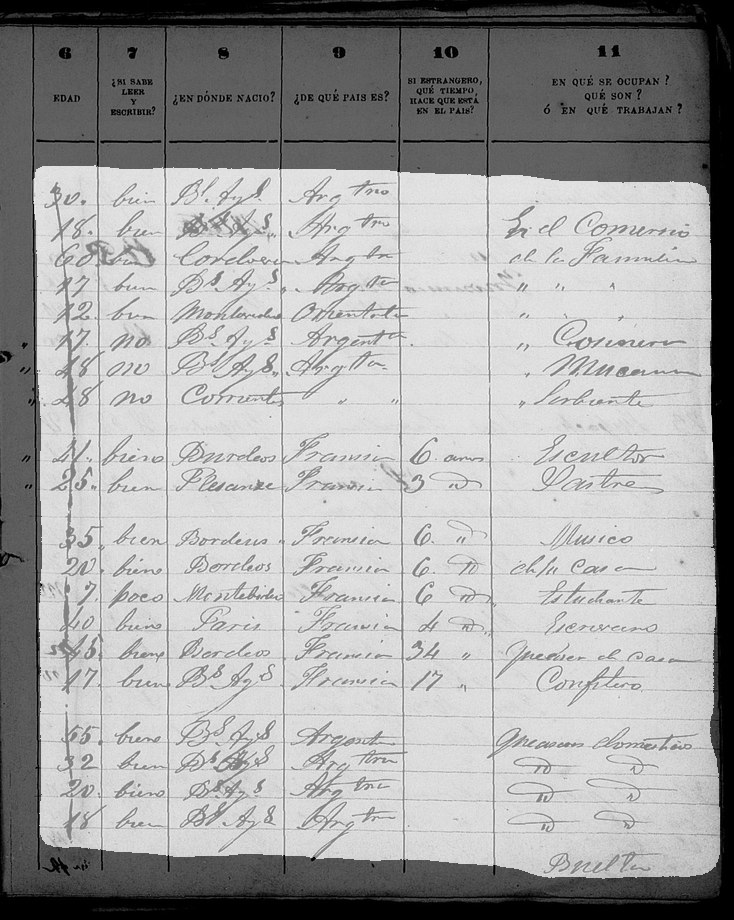 6 7 8 9 10 11
EDAD ¿SI SABE LEER Y ESCRIBIR? ¿EN DÓNDE NACIO? ¿DE QUÉ PAIS ES? SI ESTRANGERO, QUÉ TIEMPO HACE QUE ESTÁ EN EL PAIS? EN QUÉ SE OCUPAN? QUÉ SON? Ó EN QUÉ TRABAJAN?
30. bien Bs Ays Argtno
18. bien Bs Ays Argtno En el Comersio
60 Cordovesa Argtna de la Familia
17 bien Bs Ays " Argtna " " "
12. bien Montevideo Orientala " "
" 17. no Bs Ays Argentna " Cosinera
" 18 no Bs Ays " Argtna " Mucama
" 28 no Corrientes " " " Serbiente
" 41. biens Burdeos Fransia 6 años Escultor
" 25. bien Fransia 3 " Sastre
35 bien Bordeus " Fransia 6. " Musico
20. biens Bordeos Fransia 6. de su Casa
7. poco Montebideo Fransia 6 Estudiante
40 biens Paris Fransia 4 Escrivano
45. biens Bordeos Fransia 34 " de casa
17. bien Bs Ays Fransia 17 " Confitero
55. biens Bs Ays Argentna domesticos
32 bien Bs Ays Argtna
20. biens Bs Ays Argtna
18 bien Bs Ays Argtna
Buelta